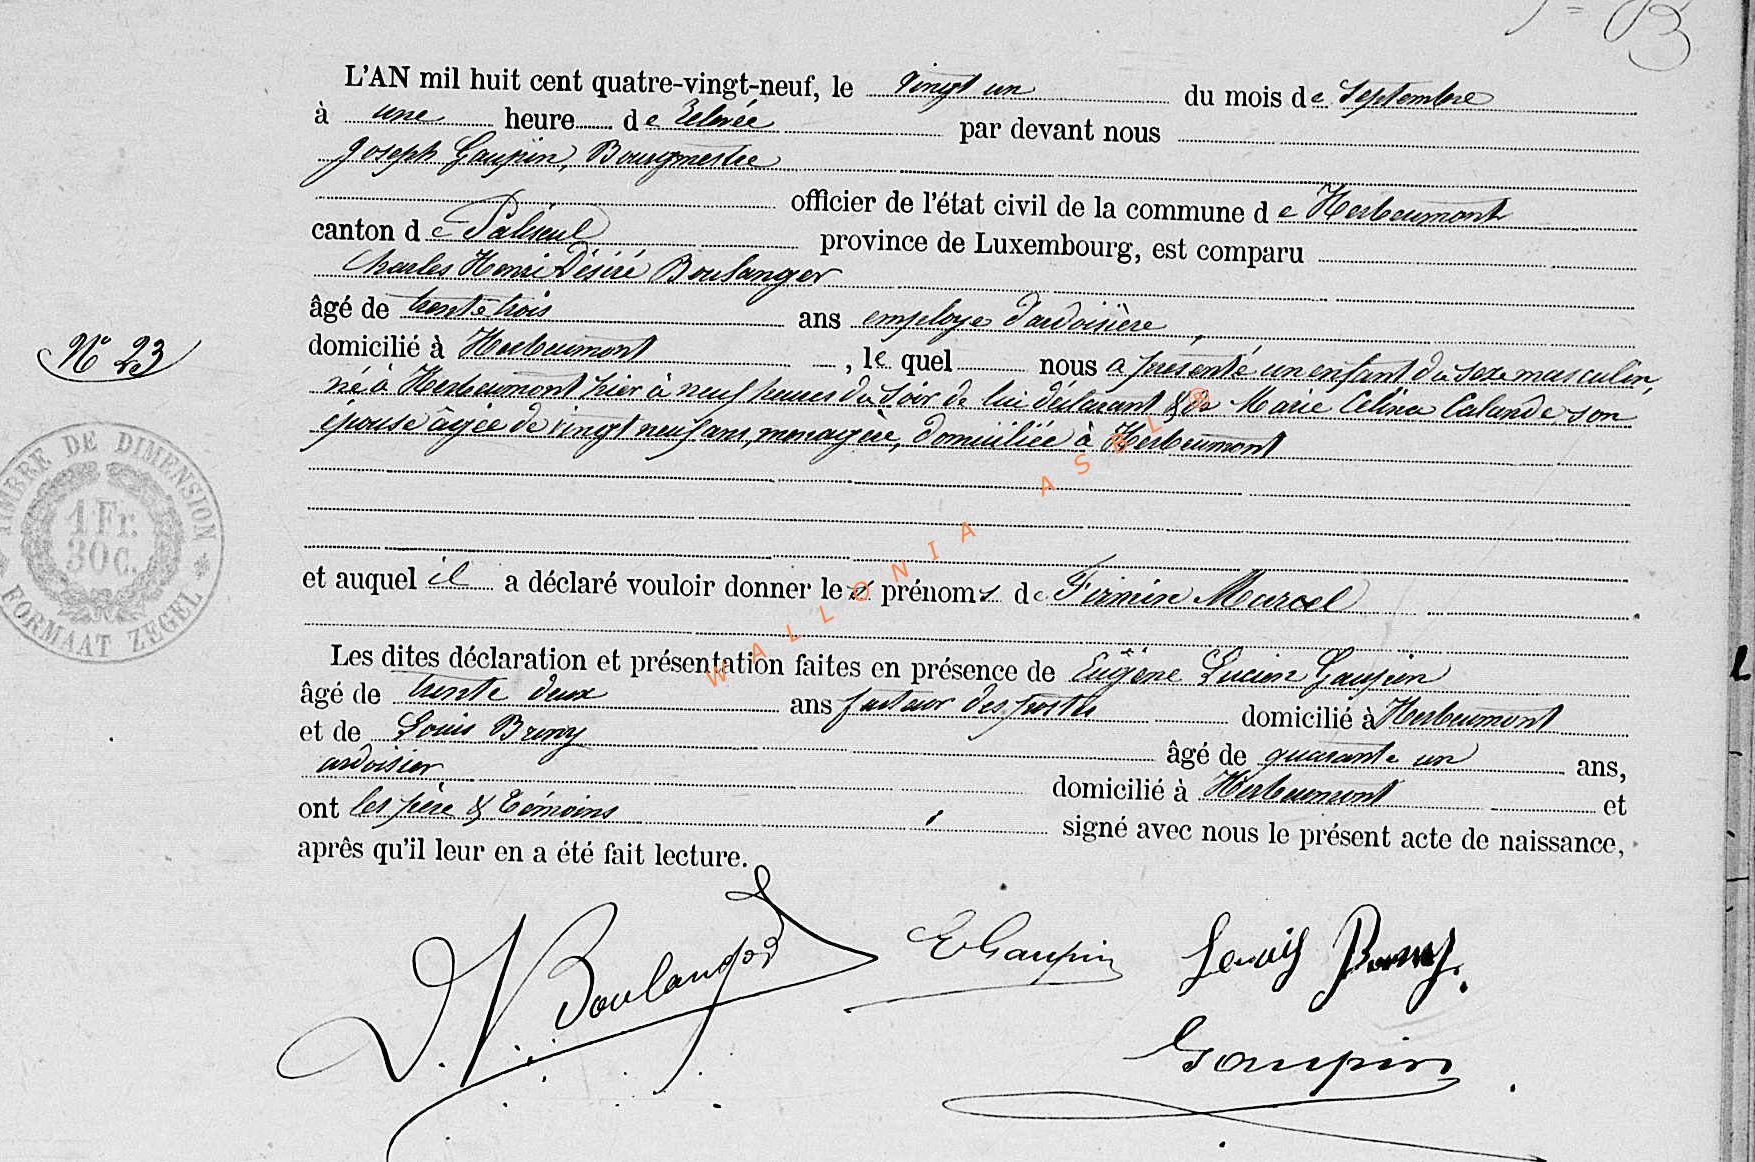 L'AN mil huit cent quatre-vingt-neuf, le vingt un du mois de Septembre
à une heure de relevée par devant nous
Joseph Gaupin, Bourgmestre
officier de l'état civil de la commune de Herbeumont
canton de Paliseul province de Luxembourg, est comparu
Charles Henri Désiré Boulanger
âgé de trente trois ans employé d'ardoisière,
domicilié à Herbeumont, lequel nous a présenté un enfant du sexe masculin,
N° 23
né à Herbeumont hier à neuf heures du soir de lui déclarant & de Marie Célina Calande son
épouse âgée de vingt neuf ans, menagère, domiciliée à Herbeumont
TIMBRE DE DIMENSION
1 Fr.
30c.
FORMAAT ZEGEL
et auquel il a déclaré vouloir donner les prénoms de Firmin Marcel.
Les dites déclaration et présentation faites en présence de Eugène Lucien Gaupin
âgé de trente deux ans facteur des postes domicilié à Herbeumont
et de Louis Brony âgé de quarante un ans,
ardoisier domicilié à Herbeumont et
ont les père & témoins, signé avec nous le présent acte de naissance,
après qu'il leur en a été fait lecture.
D. Boulanger
E Gaupin
Louis Brony.
Gaupin
WALLONIA ASBL ®